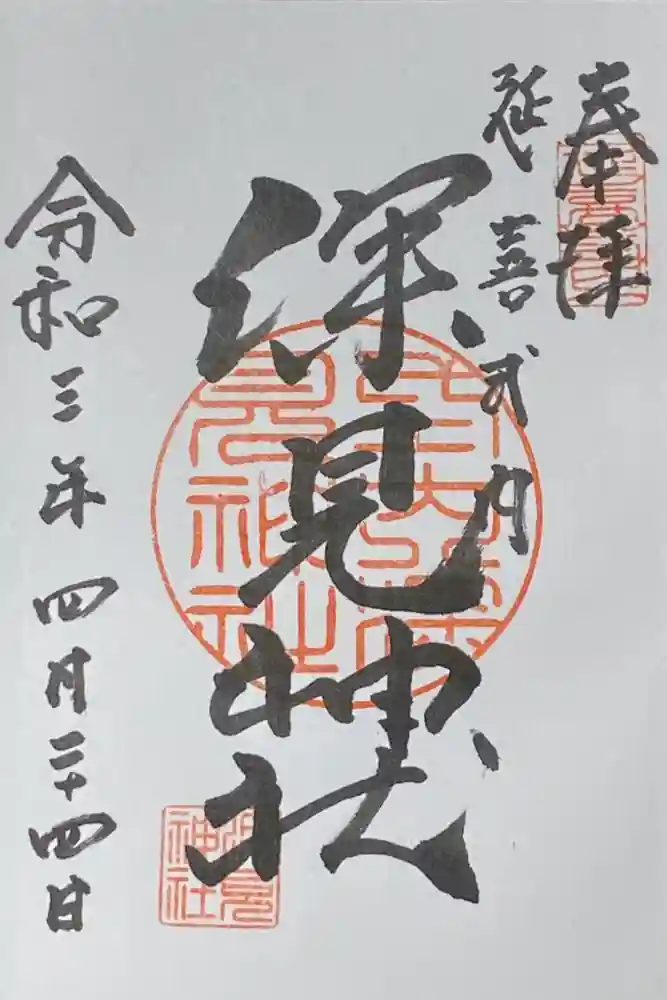 奉拝
延喜式内
深見神社
令和三年四月二十四日
深見
神社